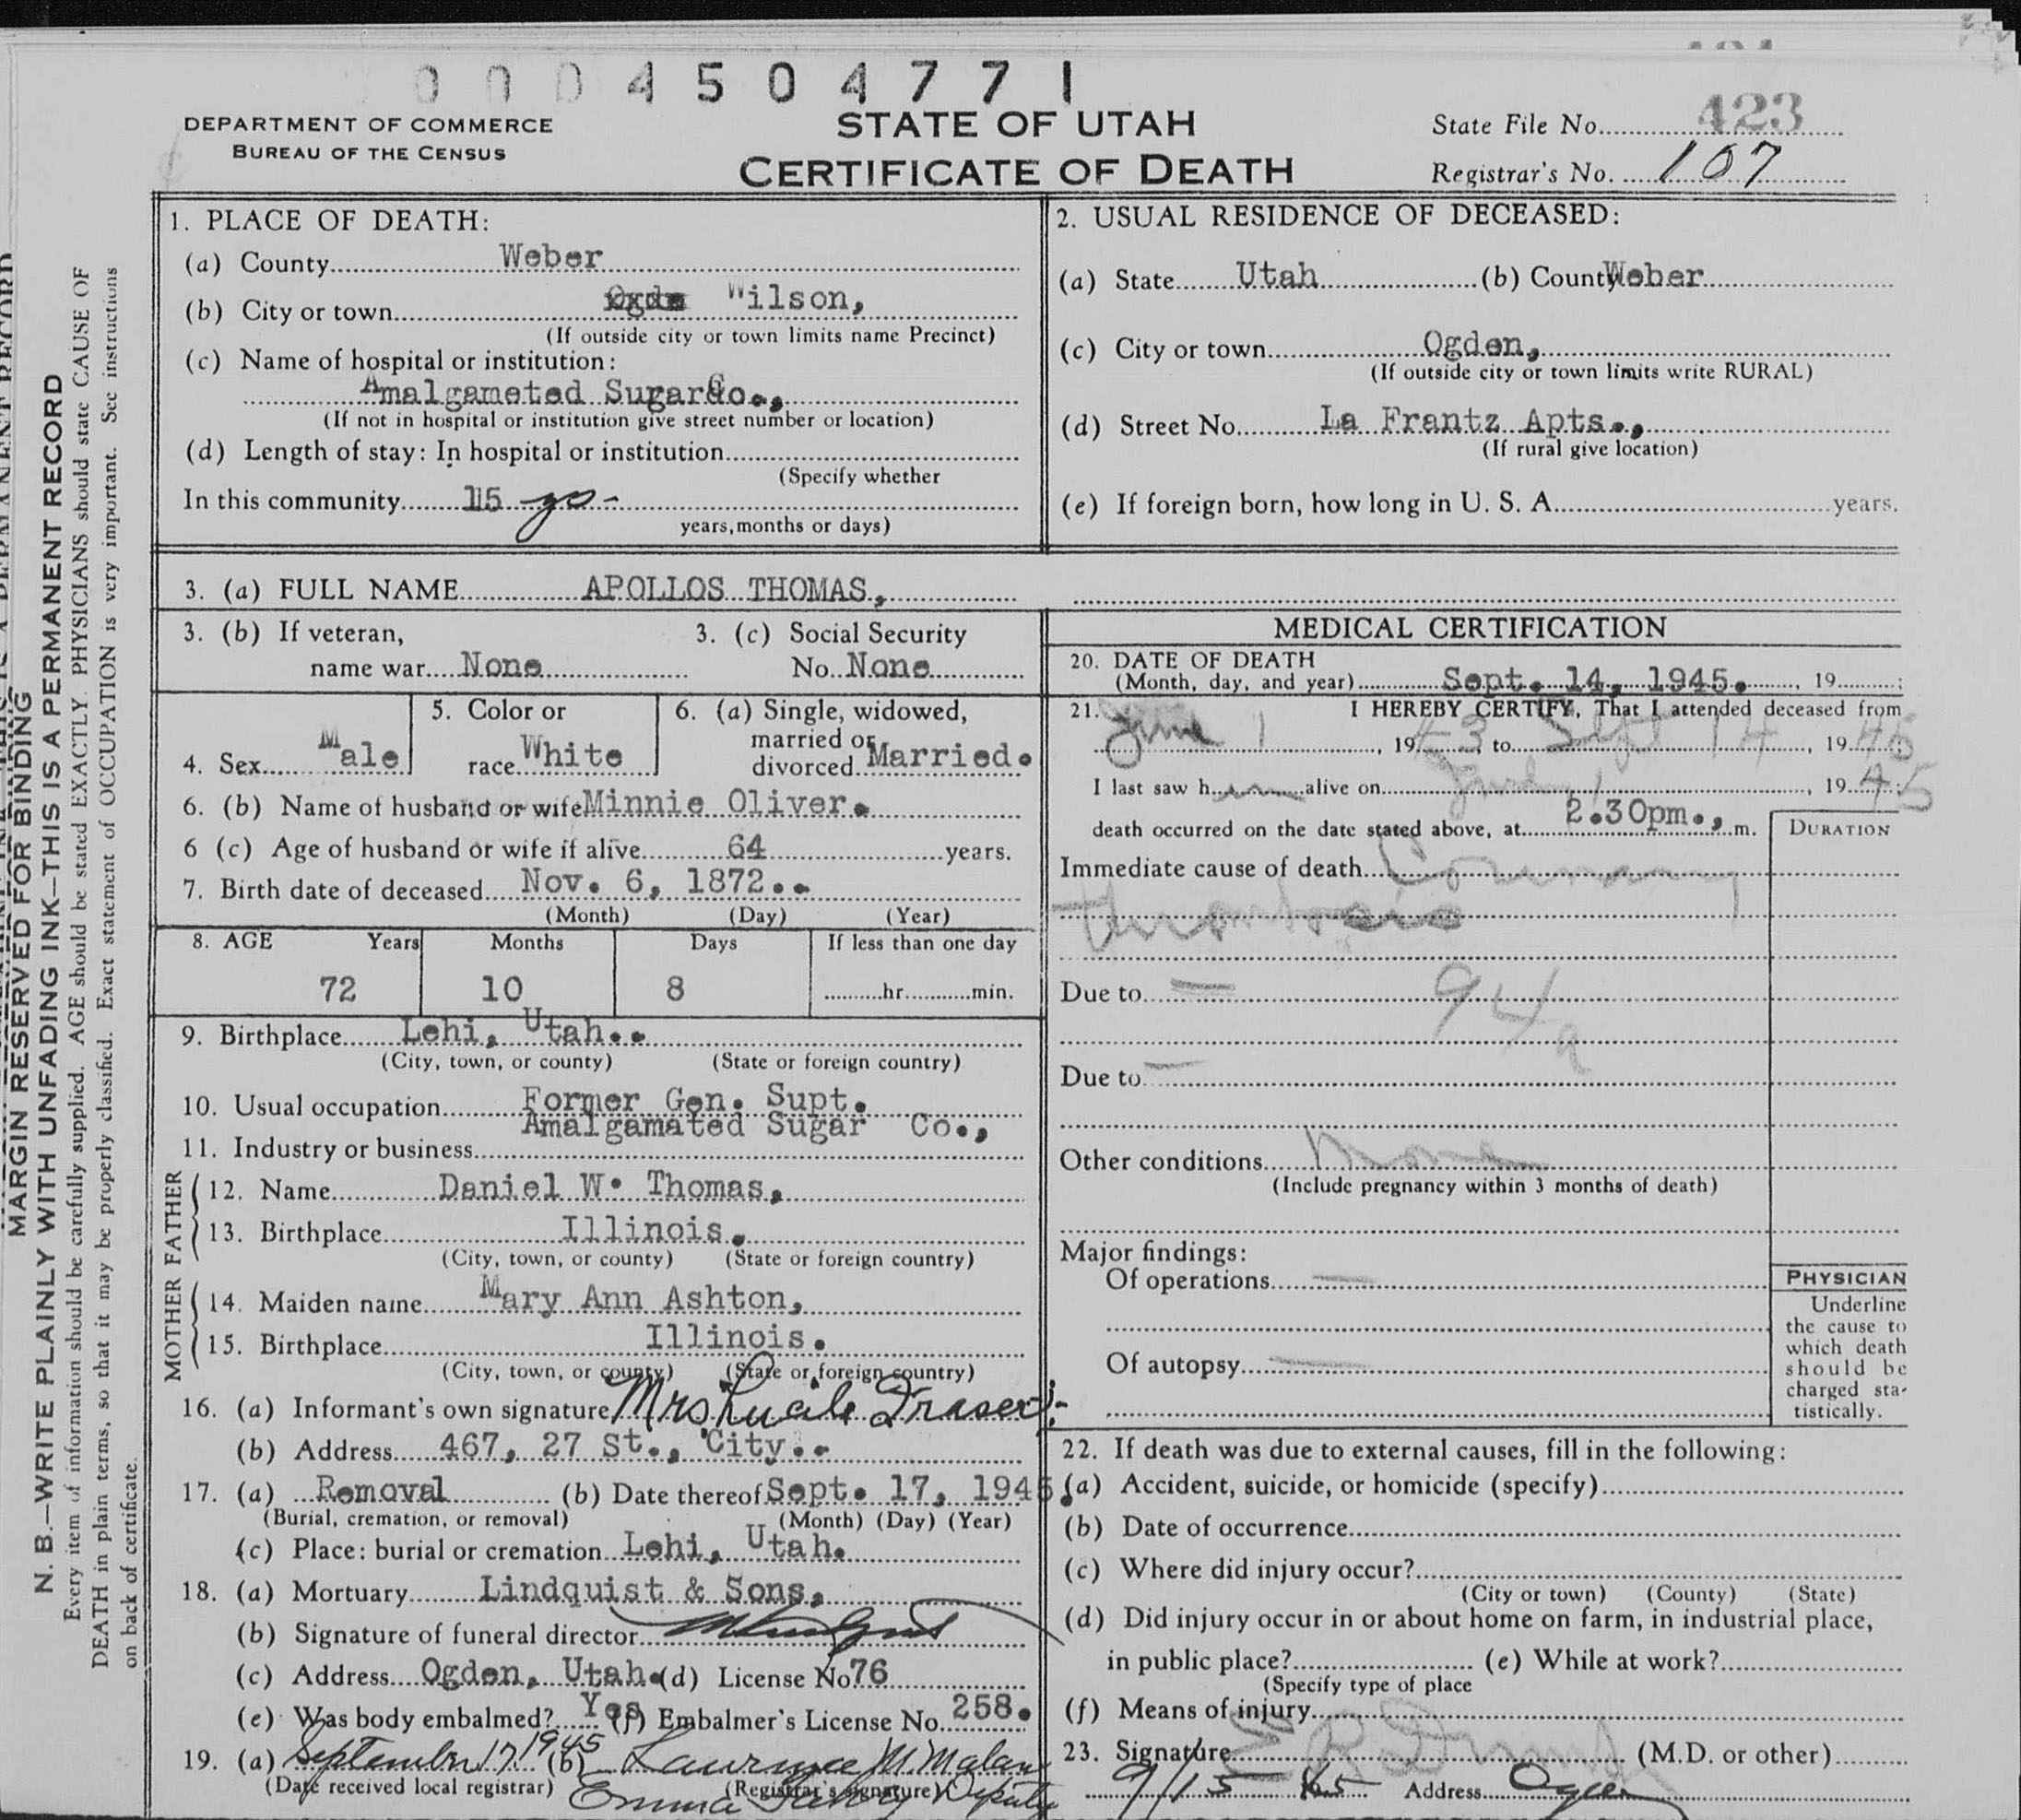 000450471
DEPARTMENT OF COMMERCE
BUREAU OF THE CENSUS
STATE OF UTAH
CERTIFICATE OF DEATH
State File No. 423
Registrar's No. 107
1. PLACE OF DEATH:
(a) County Weber
(b) City or town Wilson,
(If outside city or town limits name Precinct)
(c) Name of hospital or institution:
Amalgameted Sugar Co.,
(If not in hospital or institution give street number or location)
(d) Length of stay: In hospital or institution
(Specify whether
In this community 15
years, months or days)
2. USUAL RESIDENCE OF DECEASED:
(a) State Utah (b) County Weber
(c) City or town Ogden,
(If outside city or town limits write RURAL)
(d) Street No. La Frantz Apts.,
(If rural give location)
(e) If foreign born, how long in U. S. A. years.
3. (a) FULL NAME APOLLOS THOMAS,
3. (b) If veteran,
name war None
3. (c) Social Security
No. None
4. Sex Male
5. Color or
race White
6. (a) Single, widowed,
married or
divorced Married.
6. (b) Name of husband or wife Minnie Oliver.
6 (c) Age of husband or wife if alive 64 years.
7. Birth date of deceased Nov. 6, 1872..
(Month) (Day) (Year)
8. AGE Years Months Days If less than one day
72 10 8 hr. min.
9. Birthplace Lehi, Utah..
(City, town, or county) (State or foreign country)
10. Usual occupation Former Gen. Supt.
Amalgamated Sugar Co.,
11. Industry or business
FATHER
12. Name Daniel W. Thomas,
13. Birthplace Illinois.
(City, town, or county) (State or foreign country)
MOTHER
14. Maiden name Mary Ann Ashton,
15. Birthplace Illinois.
(City, town, or county) (State or foreign country)
16. (a) Informant's own signature Mrs Lucile Fraser
(b) Address 467, 27 St., City..
17. (a) Removal (b) Date thereof Sept. 17, 1945.
(Burial, cremation, or removal) (Month) (Day) (Year)
(c) Place: burial or cremation Lehi, Utah.
18. (a) Mortuary Lindquist & Sons,
(b) Signature of funeral director
(c) Address Ogden, Utah. (d) License No. 76
(e) Was body embalmed? Yes (f) Embalmer's License No. 258.
19. (a) September 17, 1945 (b) Lawrence M. Malan
(Date received local registrar) (Registrar's signature)
Emma Deputy
MEDICAL CERTIFICATION
20. DATE OF DEATH
(Month, day, and year) Sept. 14, 1945. , 19 ;
21. I HEREBY CERTIFY, That I attended deceased from
June 1, 1943 to Sept 14, 1945;
I last saw him alive on , 1945;
death occurred on the date stated above, at 2.30pm., m.
DURATION
Immediate cause of death Coronary
thrombosis
Due to —
94a
Due to —
Other conditions None
(Include pregnancy within 3 months of death)
Major findings:
Of operations —
Of autopsy —
PHYSICIAN
Underline
the cause to
which death
should be
charged sta-
tistically.
22. If death was due to external causes, fill in the following:
(a) Accident, suicide, or homicide (specify)
(b) Date of occurrence
(c) Where did injury occur?
(City or town) (County) (State)
(d) Did injury occur in or about home on farm, in industrial place,
in public place? (e) While at work?
(Specify type of place
(f) Means of injury
23. Signature (M.D. or other)
9/15 45 Address Ogden
MARGIN RESERVED FOR BINDING
N. B.—WRITE PLAINLY WITH UNFADING INK—THIS IS A PERMANENT RECORD
Every item of information should be carefully supplied. AGE should be stated EXACTLY. PHYSICIANS should state CAUSE OF
DEATH in plain terms, so that it may be properly classified. Exact statement of OCCUPATION is very important. See instructions
on back of certificate.